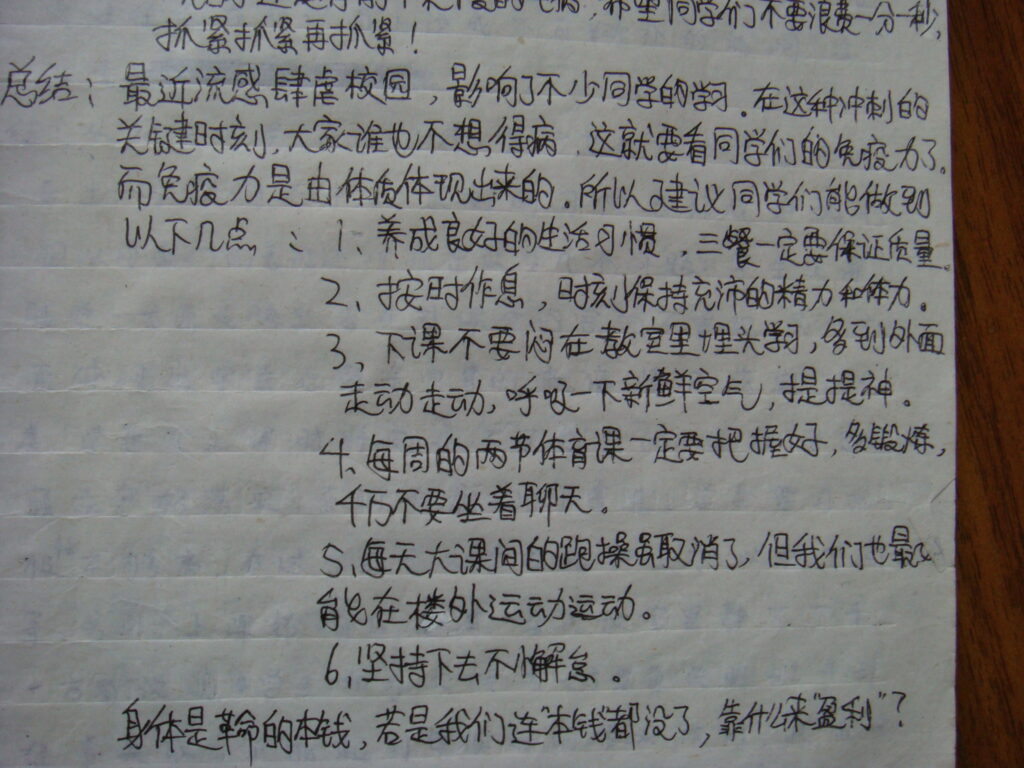 希望同学们不要浪费一分一秒,
抓紧抓紧再抓紧!
总结: 最近流感肆虐校园,影响了不少同学的学习.在这种冲刺的
关键时刻,大家谁也不想得病.这就要看同学们的免疫力了.
而免疫力是由体质体现出来的.所以建议同学们能做到
以下几点: 1、养成良好的生活习惯,三餐一定要保证质量.
2、按时作息,时刻保持充沛的精力和体力。
3、下课不要闷在教室里埋头学习,多到外面
走动走动,呼吸一下新鲜空气,提提神。
4、每周的两节体育课一定要把握好,多锻炼,
千万不要坐着聊天。
5、每天大课间的跑操虽取消了,但我们也最好
能在楼外运动运动。
6、坚持下去不懈怠。
身体是革命的本钱,若是我们连"本钱"都没了,靠什么来"盈利"?